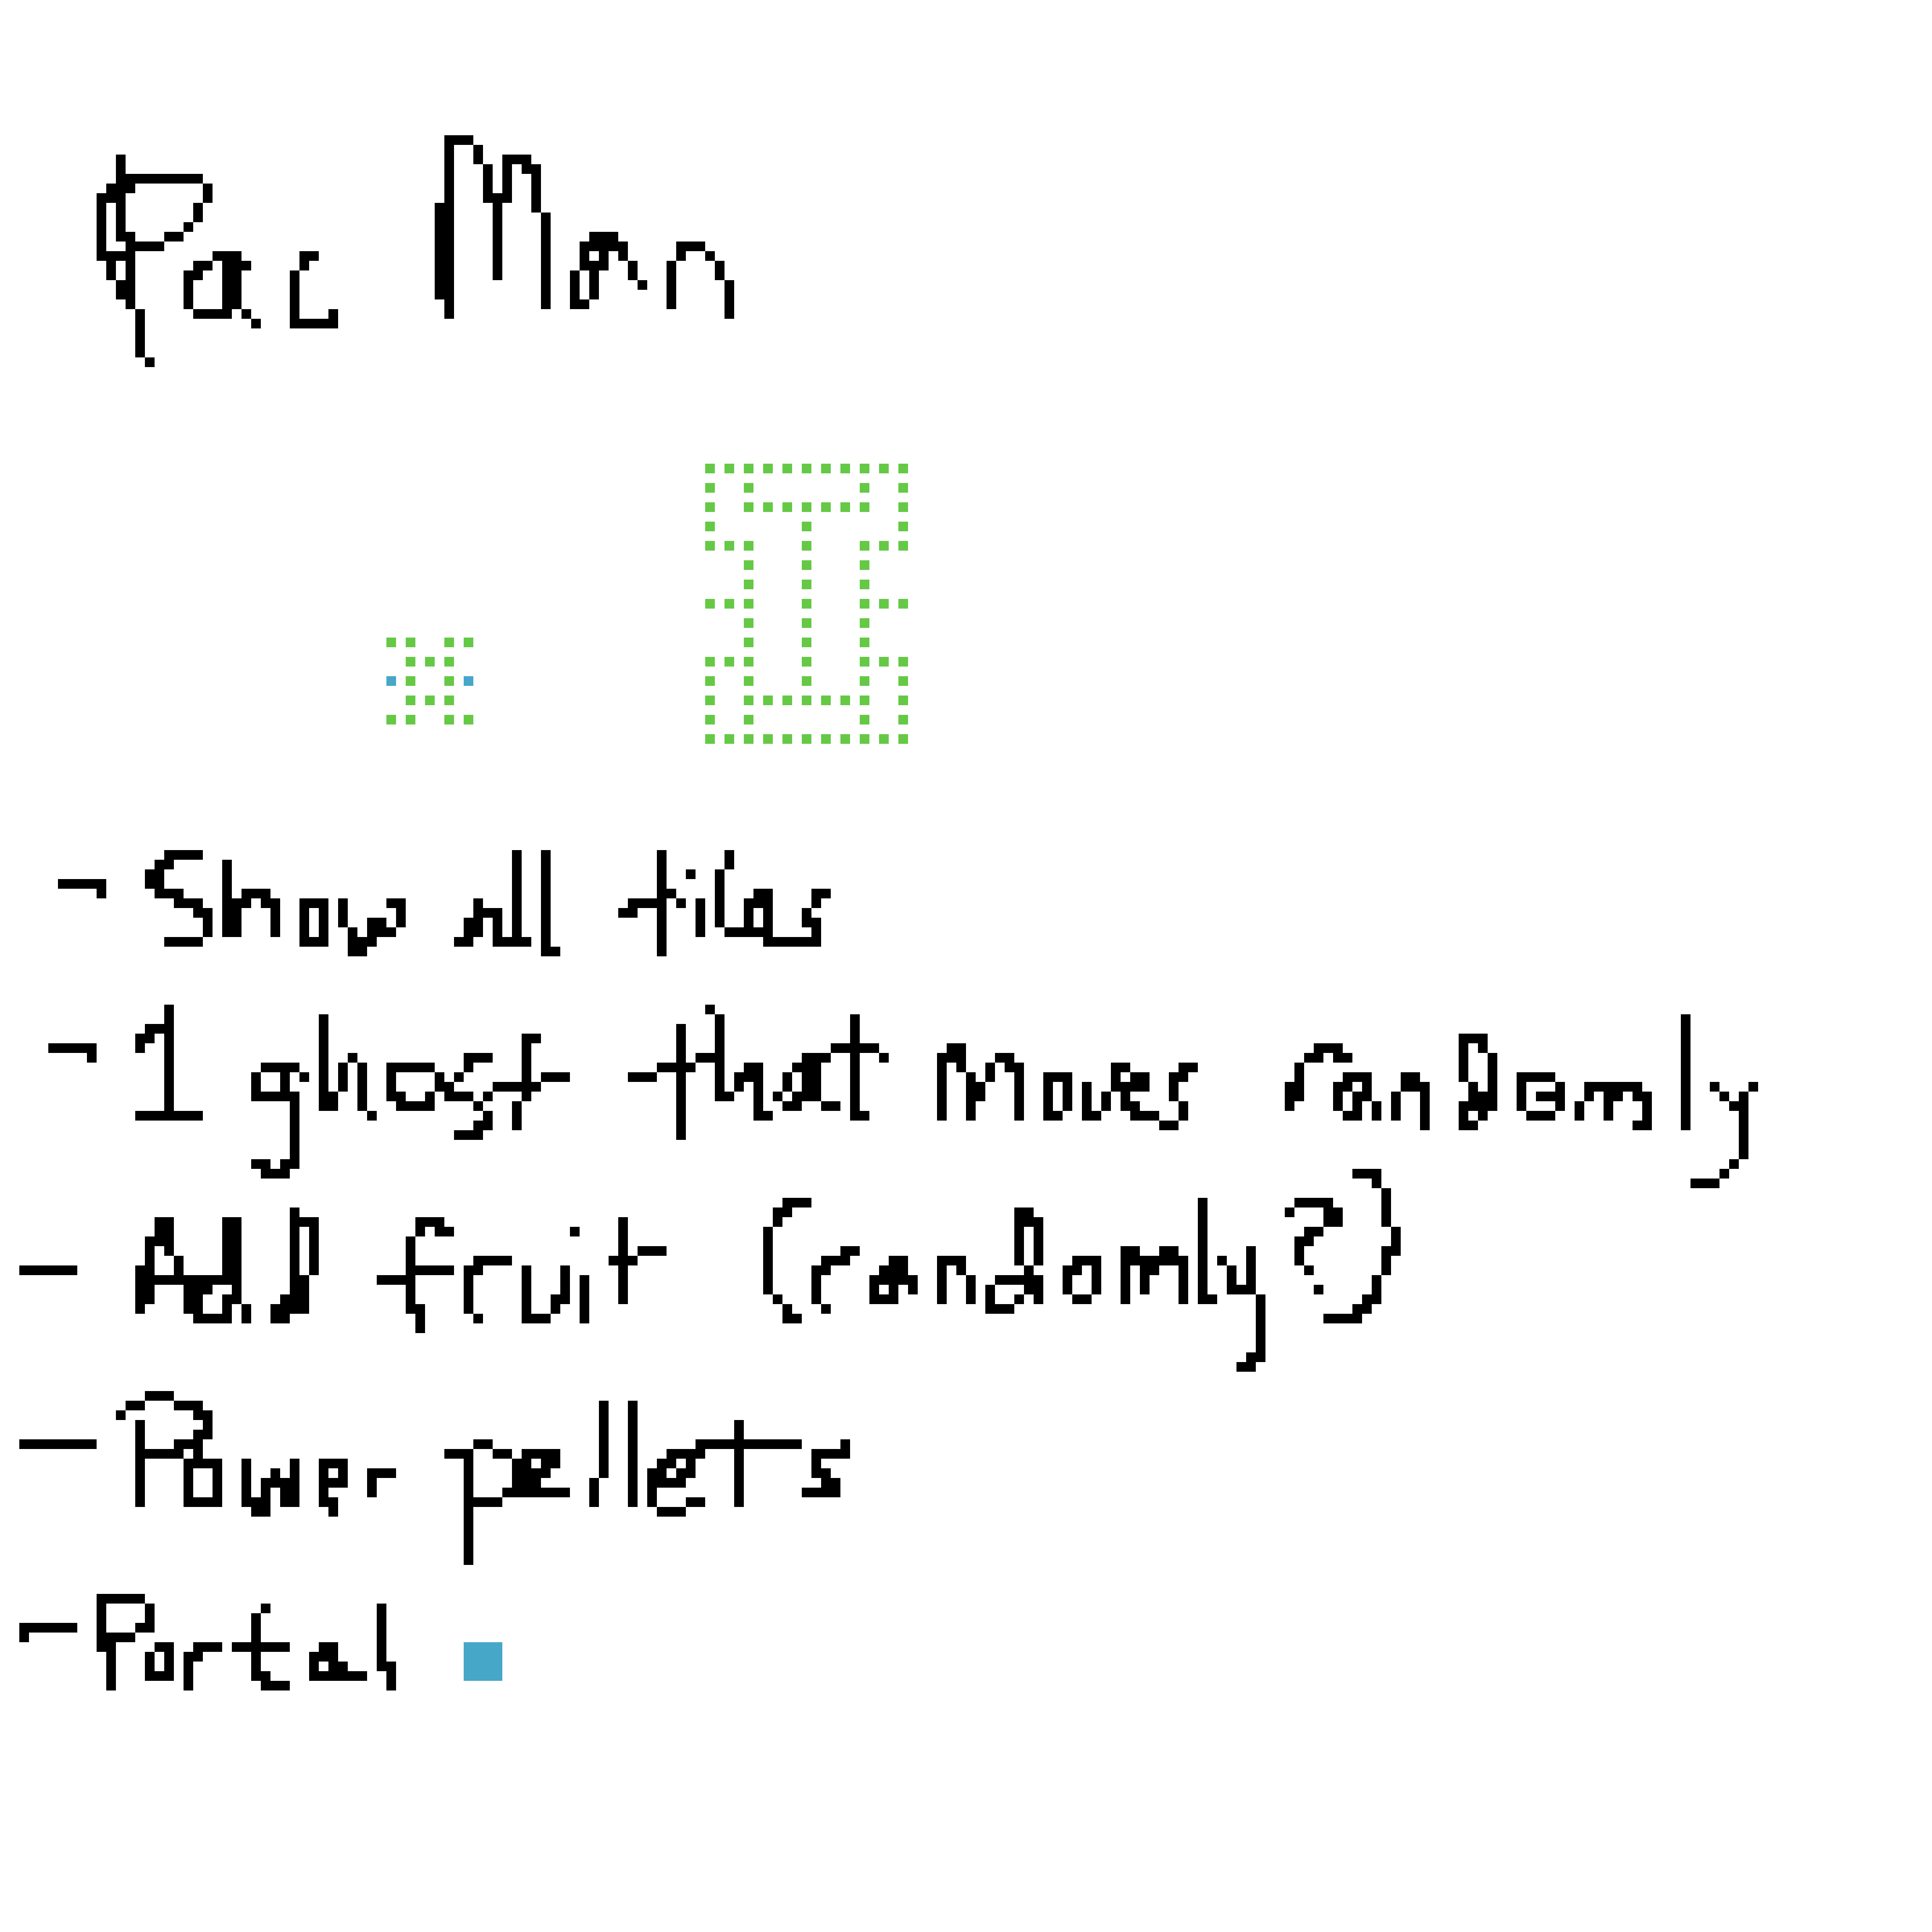 Pac Man
- Show all tiles
- 1 ghost that moves randomly
- Add fruit (randomly?)
- Power pellets
- Portal